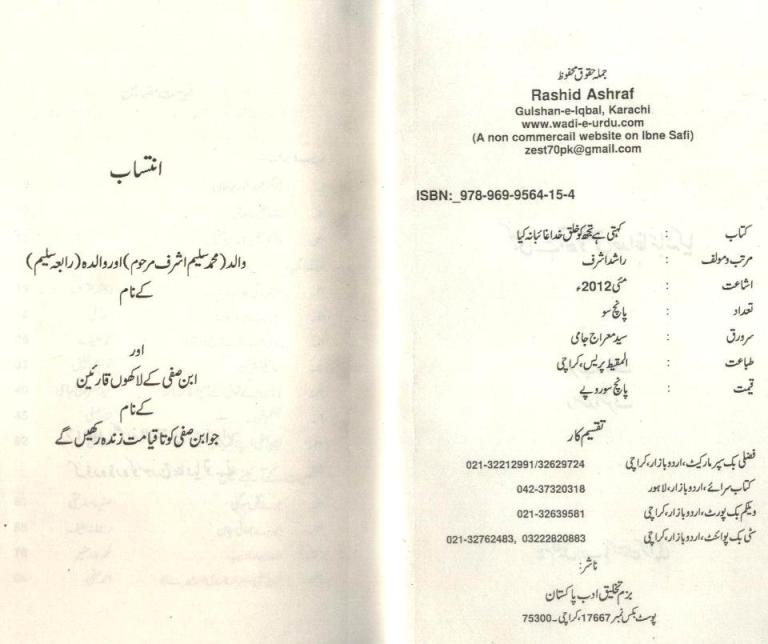 جملہ حقوق محفوظ
Rashid Ashraf
Gulshan-e-Iqbal, Karachi
www.wadi-e-urdu.com
(A non commercail website on Ibne Safi)
zest70pk@gmail.com
ISBN:_978-969-9564-15-4
کتاب : کہتی ہے تجھ کو خلق خدا غائبانہ کیا
مرتب و مولف : راشد اشرف
اشاعت : مئی 2012ء
تعداد : پانچ سو
سرورق : سید معراج جامی
طباعت : المقیط پریس، کراچی
قیمت : پانچ سو روپے
تقسیم کار
فضلی بک سپر مارکیٹ، اردو بازار، کراچی 021-32212991/32629724
کتاب سرائے، اردو بازار، لاہور 042-37320318
ویلکم بک پورٹ، اردو بازار، کراچی 021-32639581
سٹی بک پوائنٹ، اردو بازار، کراچی 021-32762483, 03222820883
ناشر:
بزم تخلیق ادب پاکستان
پوسٹ بکس نمبر 17667، کراچی۔75300
انتساب
والد (محمد سلیم اشرف مرحوم) اور والدہ (رابعہ سلیم)
کے نام
اور
ابن صفی کے لاکھوں قارئین
کے نام
جو ابن صفی کو تا قیامت زندہ رکھیں گے